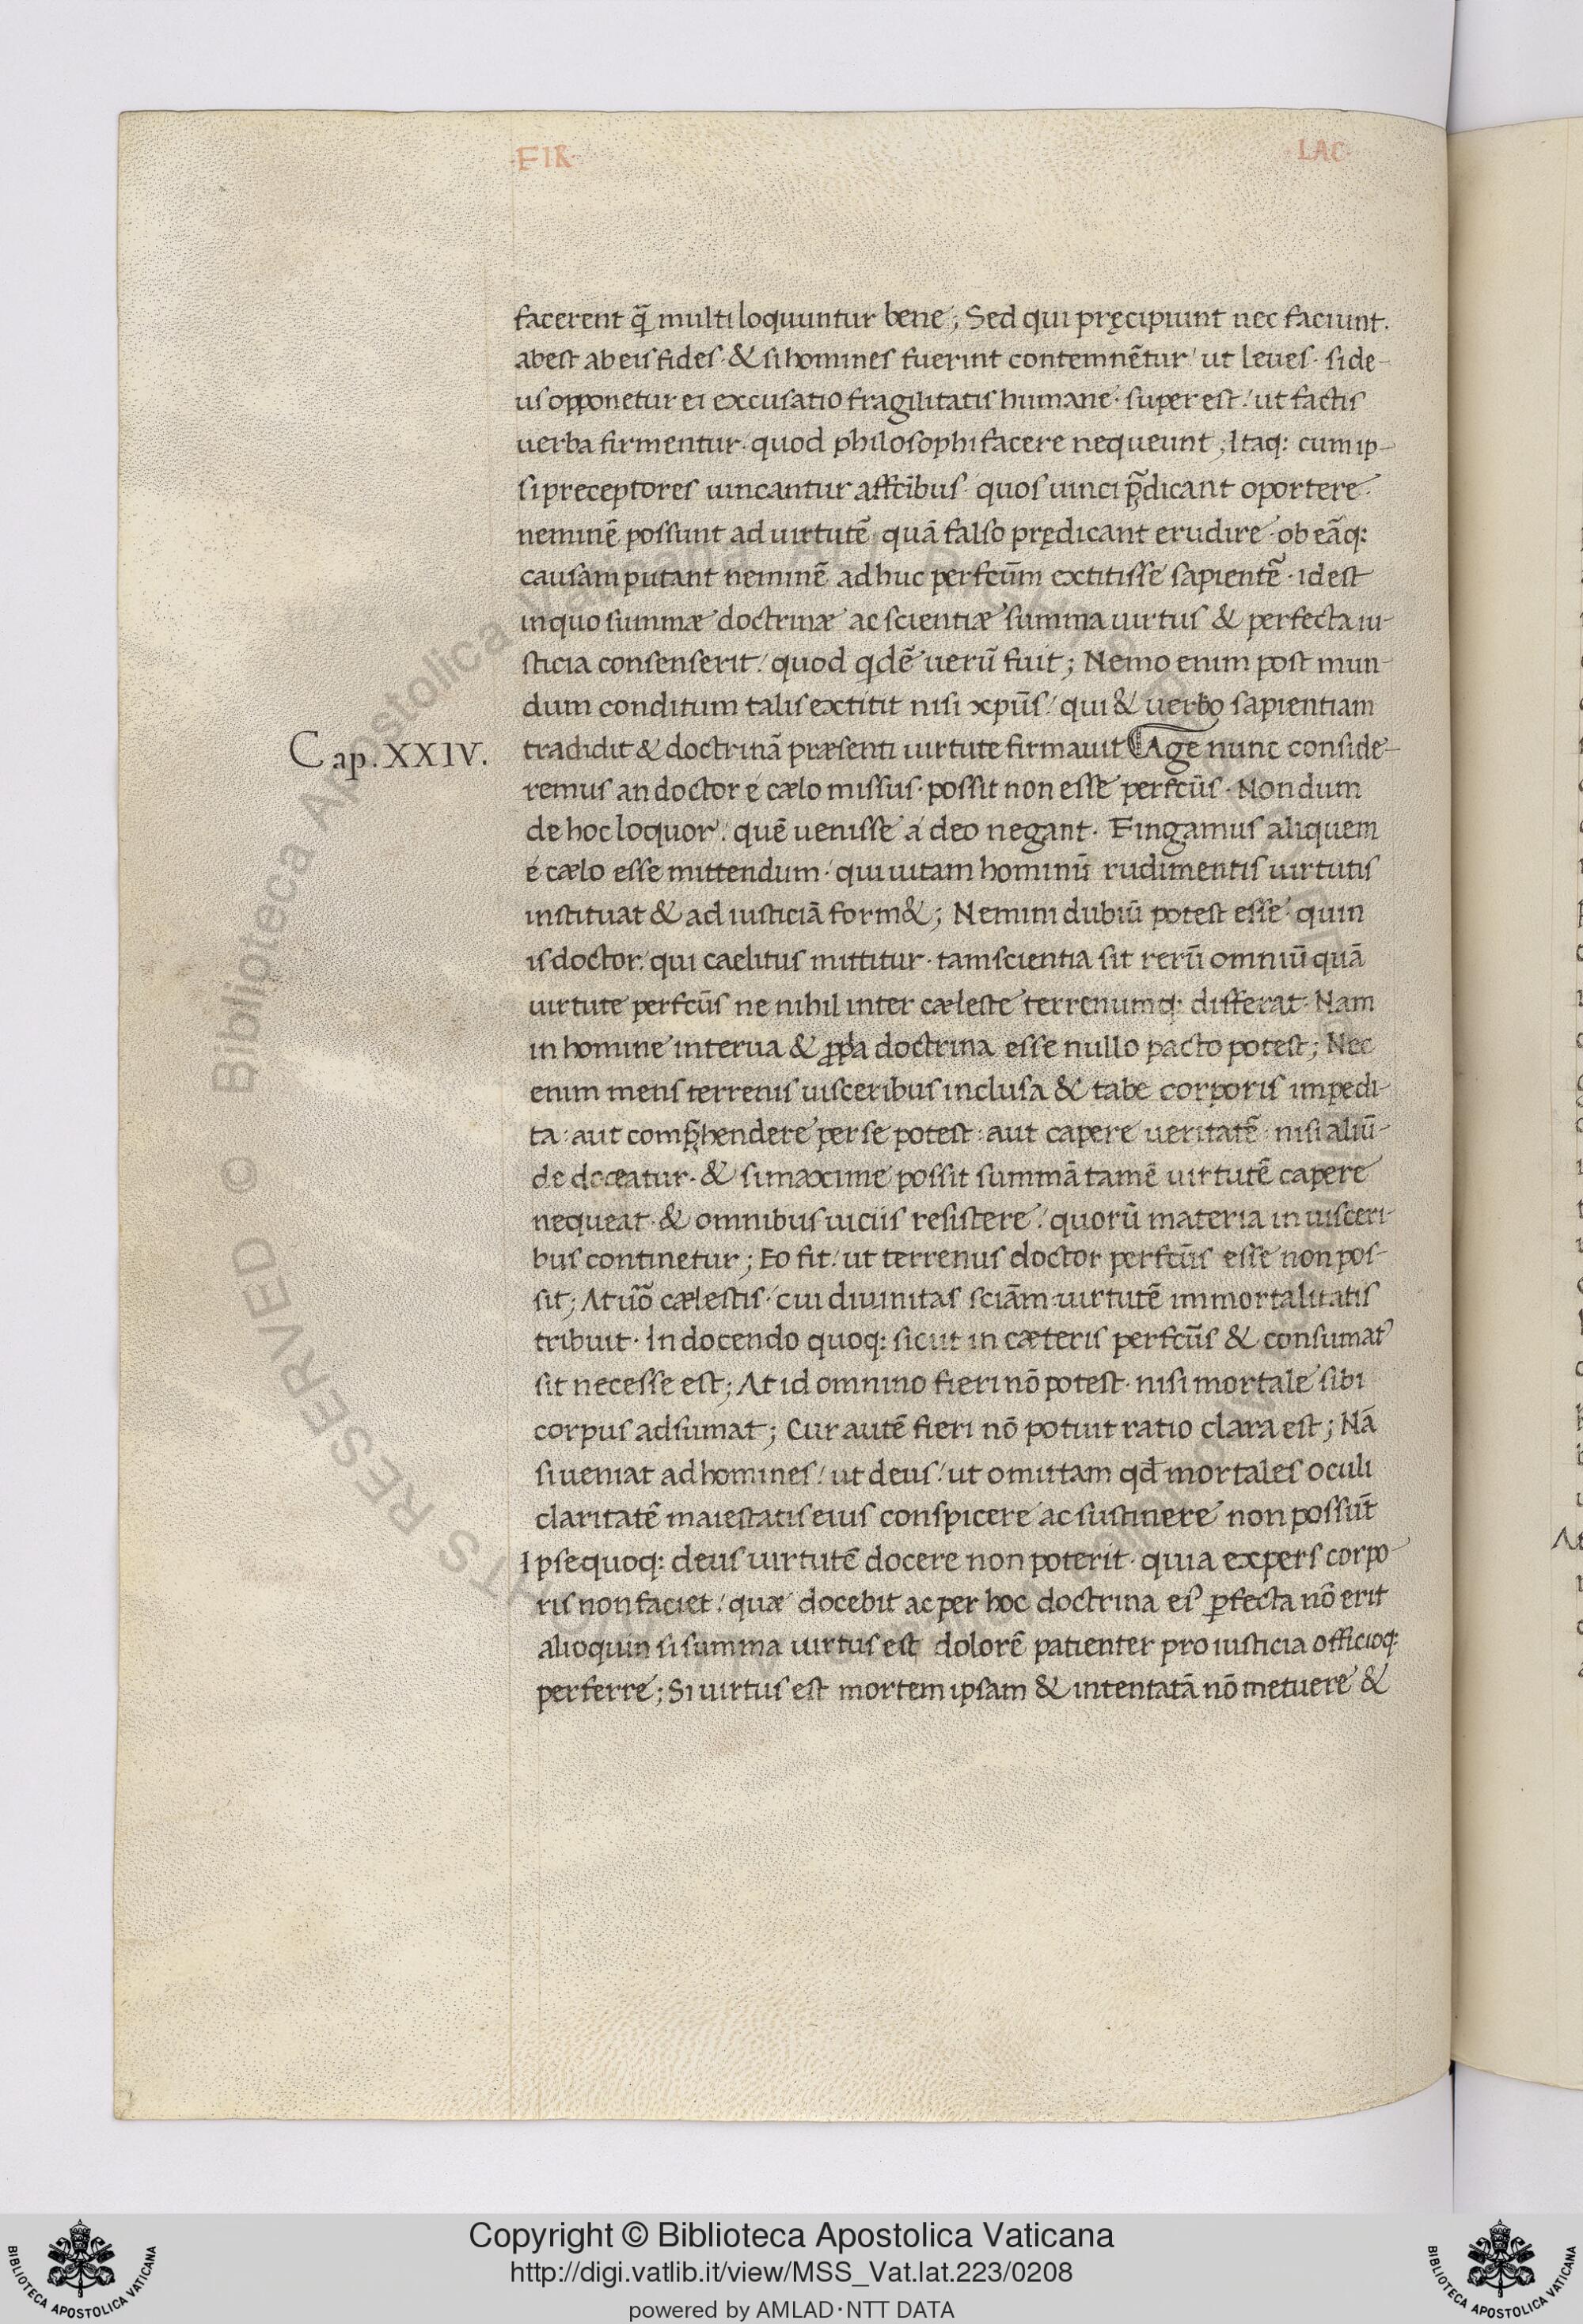 ·FIR· ·LAC·
facerent q̃ multi loquuntur bene; Sed qui pręcipiunt nec faciunt.
abest ab eis fides· & si homines fuerint contemnẽtur/ ut leues· si de-
us opponetur ei excusatio fragilitatis humane· super est/ ut factis
uerba firmentur· quod philosophi facere nequeunt; Itaq: cum ip-
si preceptores uincantur affc̃ibus· quos uinci p̃dicant oportere·
neminẽ possunt ad uirtutẽ quã falso prędicant erudire· ob eãq:
causam putant neminẽ adhuc perfcũm extitisse sapientẽ· id est
in quo summæ doctrinæ ac scientiæ summa uirtus & perfecta iu-
sticia consenserit/ quod qdẽ uerũ fuit; Nemo enim post mun-
dum conditum talis extitit nisi xpũs/ qui & uerbo sapientiam
Cap. XXIV.
tradidit & doctrinã præsenti uirtute firmauit Age nunc conside-
remus an doctor é cælo missus· possit non esse perfcũs· Nondum
de hoc loquor/ quẽ uenisse á deo negant· Fingamus aliquem
é cælo esse mittendum· qui uitam hominũ rudimentis uirtutis
instituat & ad iusticiã form&; Nemini dubiũ potest esse· quin
is doctor/ qui caelitus mittitur· tam scientia sit rerũ omniũ quã
uirtute perfcũs ne nihil inter cæleste terrenumq: differat· Nam
in homine interua & pp̃a doctrina esse nullo pacto potest; Nec
enim mens terrenis uisceribus inclusa & tabe corporis impedi-
ta· aut comp̃hendere per se potest· aut capere ueritatẽ· nisi aliũ-
de doceatur· & si maxime possit summã tamẽ uirtutẽ capere
nequeat· & omnibus uiciis resistere/ quorũ materia in uisceri-
bus continetur; Eo fit/ ut terrenus doctor perfcũs esse non pos-
sit; At uõ cælestis· cui diuinitas sciãm· uirtutẽ immortalitatis
tribuit· In docendo quoq: sicut in cæteris perfcũs & consumat᾽
sit necesse est; At id omnino fieri nõ potest· nisi mortale sibi
corpus adsumat; Cur autẽ fieri nõ potuit ratio clara est; Nã
si ueniat ad homines/ ut deus/ ut omittam qđ mortales oculi
claritatẽ maiestatis eius conspicere ac sustinere non possũt
Ipse quoq: deus uirtutẽ docere non poterit· quia expers corpo-
ris non faciet/ quæ docebit ac per hoc doctrina ei᾽ ꝑfecta nõ erit
alioquin si summa uirtus est dolorẽ patienter pro iusticia officioq:
perferre; Si uirtus est mortem ipsam & intentatã nõ metuere &
© Biblioteca Apostolica Vaticana
RIGHTS RESERVED
BIBLIOTECA APOSTOLICA VATICANA
Copyright © Biblioteca Apostolica Vaticana
http://digi.vatlib.it/view/MSS_Vat.lat.223/0208
powered by AMLAD·NTT DATA
BIBLIOTECA APOSTOLICA VATICANA